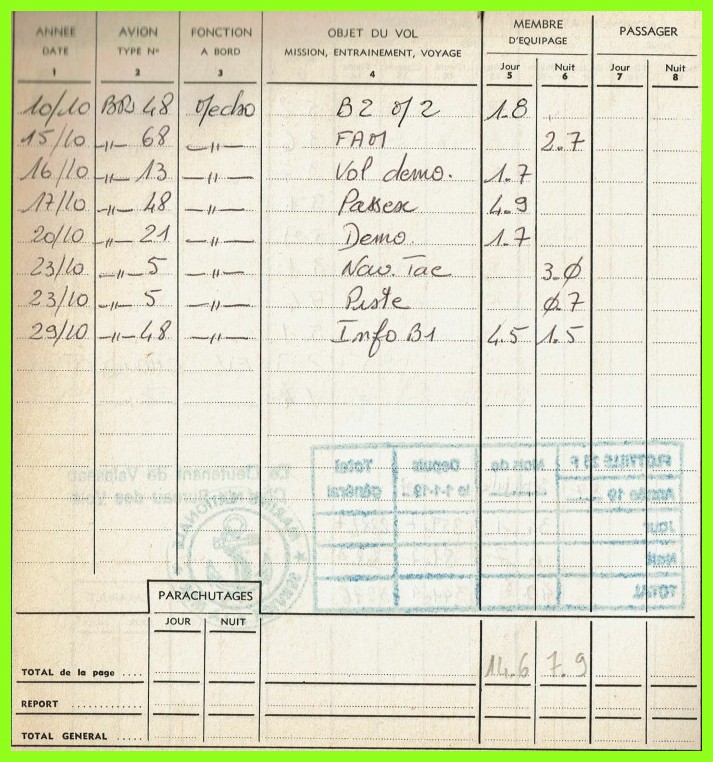 ANNÉE AVION FONCTION OBJET DU VOL MEMBRE D'EQUIPAGE PASSAGER
DATE TYPE N° A BORD MISSION, ENTRAINEMENT, VOYAGE Jour Nuit Jour Nuit
1 2 3 4 5 6 7 8
10/10 BR 48 Mecbo B2 M2 1.8
15/10 —〃— 68 —〃— FAM 2.7
16/10 —〃— 13 —〃— Vol demo. 1.7
17/10 —〃— 48 —〃— Passex 4.9
20/10 —〃— 21 —〃— Demo. 1.7
23/10 —〃— 5 —〃— Nav. Tac 3.0
23/10 —〃— 5 —〃— Piste 0.7
29/10 —〃— 48 —〃— Info B1 4.5 1.5
Le Lieutenant de Vaisseau
Total général Depuis le 1-1-19 Mois de FLOTTILLE 23 F
Année 19
Jour
Nuit
TOTAL
PARACHUTAGES
JOUR NUIT
TOTAL de la page .... 14.6 7.9
REPORT ............
TOTAL GENERAL ......